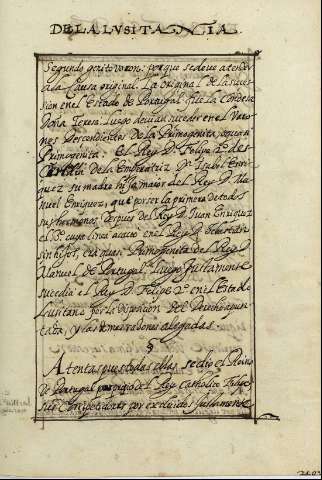 DE LA LVSITANIA.
Segundo genito varon: porque se deve atender
a la Causa original. La original de la suce
sión en el Estado de Portugal fue la Condesa
Doña Teresa. Luego devian suceder en el Varo
nes Descendientes de la Primogenita, aquien
Primogenita. El Rey Dn. Felipe 2º des
de la Emperatriz Dª Isabel Enri
quez su madre hija maior del Rey Dn. Ma
nuel Enriquez, que por ser la primera de todos
sus hermanos, despues del Rey Dn. Juan Enriquez
el 3º cuya linea acabó en el Rey Dn. Sebastian
sin hijos, era quasi Primogenita del Rey Dn.
Manuel de Portugal. Luego justamente
sucedia el Rey Dn. Felipe 2º en el Estado
Lusitano por la disposicion del Derecho apun
tada, y las demas razones alegadas.
§
Atentas pues todas ellas se dio el Reino
de Portugal por proprio del Rey Catholico Felipe
sus Competidores por excluidos justamente